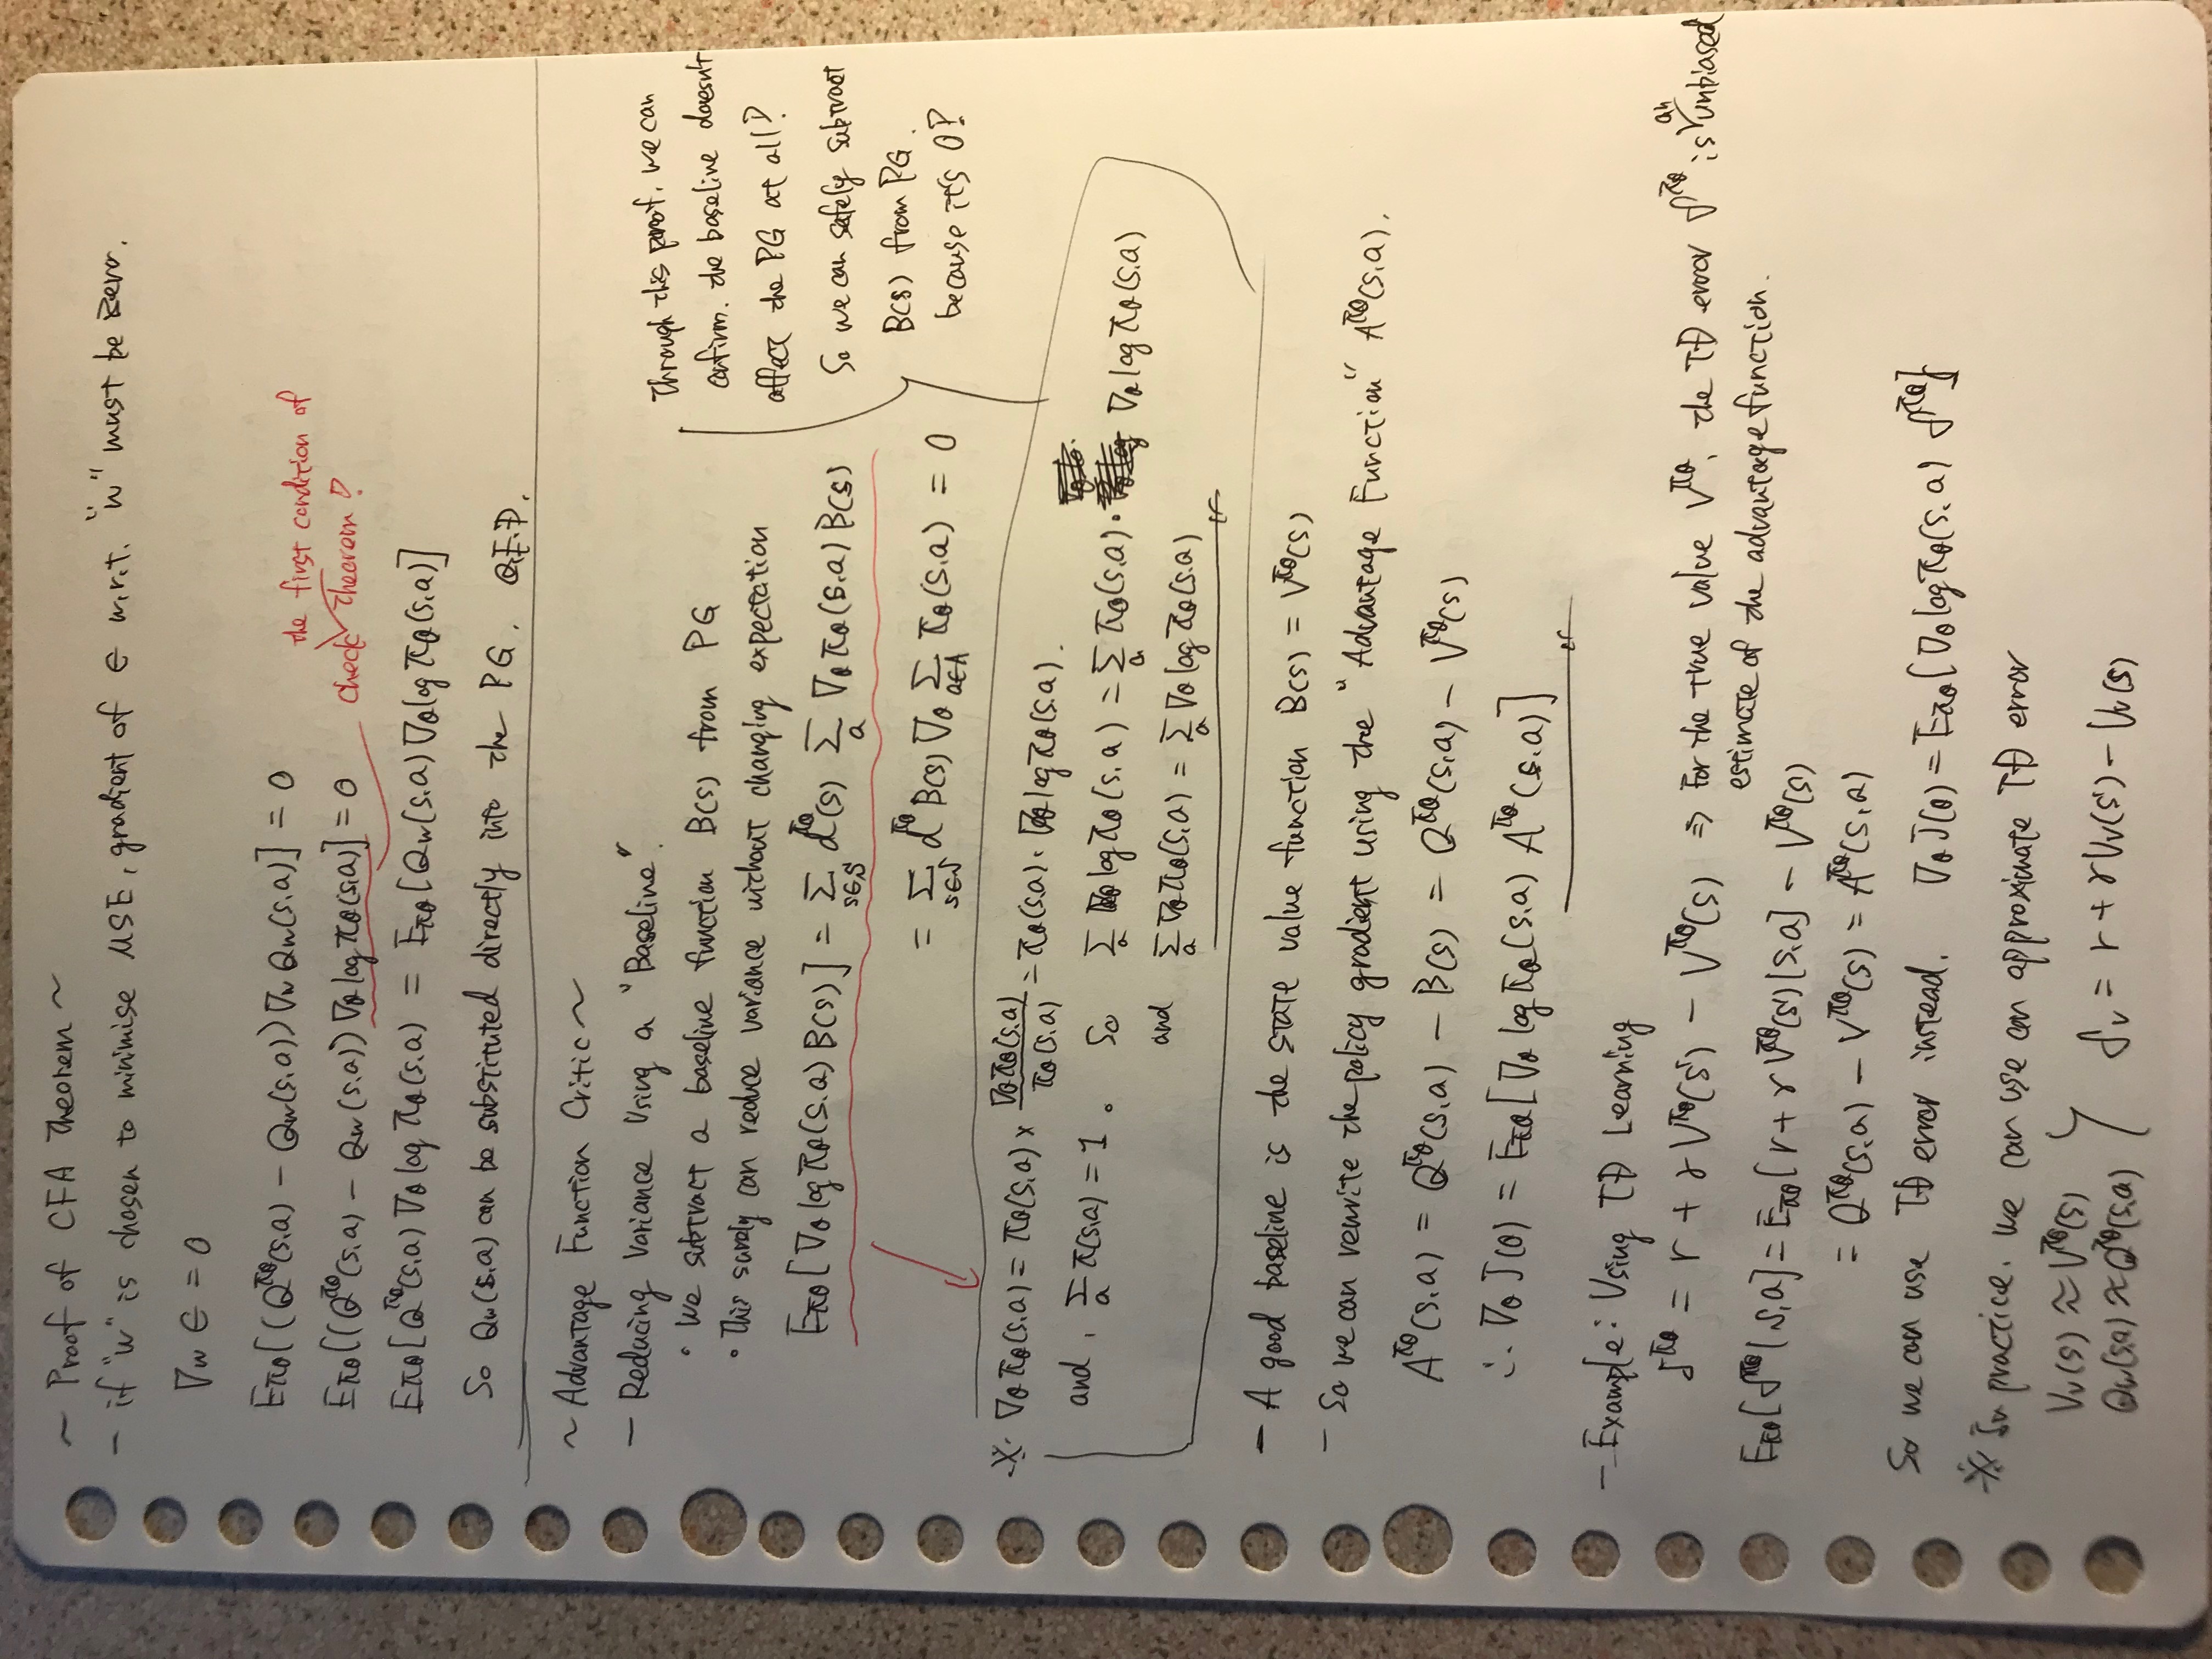 ~ Proof of CFA Theorem ~
- if "w" is chosen to minimise MSE, gradient of ϵ w.r.t. "w" must be zero.
∇w ϵ = 0
Eπθ[(Q^πθ(s,a) - Qw(s,a)) ∇w Qw(s,a)] = 0
Eπθ[(Q^πθ(s,a) - Qw(s,a)) ∇θ log πθ(s,a)] = 0
the first condition of
check Theorem!
Eπθ[Q^πθ(s,a) ∇θ log πθ(s,a) = Eπθ[Qw(s,a) ∇θ log πθ(s,a)]
So Qw(s,a) can be substituted directly into the PG. Q.E.D.
~ Advantage Function Critic ~
- Reducing Variance Using a "Baseline".
・We subtract a baseline function B(s) from PG
・This surely can reduce variance without changing expectation
Eπθ[∇θ log πθ(s,a) B(s)] = Σ s∈S d^πθ(s) Σ a ∇θ πθ(s,a) B(s)
= Σ s∈S d^πθ B(s) ∇θ Σ a∈A πθ(s,a) = 0
Through this proof, we can
confirm. the baseline doesn't
affect the PG at all!
So we can safely subtract
B(s) from PG.
because it's 0!
※ ∇θ πθ(s,a) = πθ(s,a) × ∇θ πθ(s,a) / πθ(s,a) = πθ(s,a) · ∇θ log πθ(s,a).
and, Σ a π(s,a) = 1. So Σ a ∇θ log πθ(s,a) = Σ a πθ(s,a) · ∇θ log πθ(s,a)
and Σ a ∇θ πθ(s,a) = Σ a ∇θ log πθ(s,a)
- A good baseline is the state value function B(s) = V^πθ(s)
- So we can rewrite the policy gradient using the "Advantage Function" A^πθ(s,a).
A^πθ(s,a) = Q^πθ(s,a) - B(s) = Q^πθ(s,a) - V^πθ(s)
∴ ∇θ J(θ) = Eπθ[∇θ log πθ(s,a) A^πθ(s,a)]
- Example: Using TD Learning
δ^πθ = r + γ V^πθ(s') - V^πθ(s) ⇒ For the true value V^πθ, the TD error δ^πθ is an unbiased
estimate of the advantage function.
Eπθ[δ^πθ|s,a] = Eπθ[r + γ V^πθ(s')|s,a] - V^πθ(s)
= Q^πθ(s,a) - V^πθ(s) = A^πθ(s,a)
So we can use TD error instead. ∇θ J(θ) = Eπθ[∇θ log πθ(s,a) δ^πθ]
※ In practice. we can use an approximate TD error
Vv(s) ≈ V^πθ(s)
Qw(s,a) ≈ Q^πθ(s,a)
δv = r + γ Vv(s') - Vv(s)